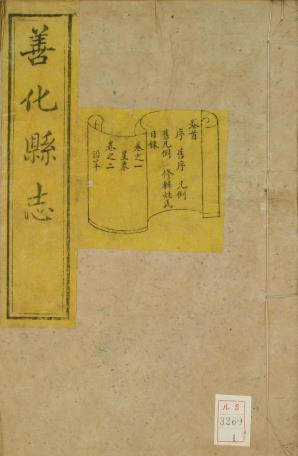 善化縣志
卷首
序 舊序 凡例
舊凡例 修輯姓氏
目錄
卷之一
星氣
卷之二
沿革
ル5
3269
1